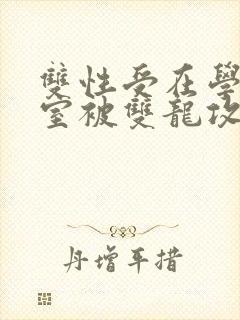 雙性受在學
室被雙龍攻
丹增平措